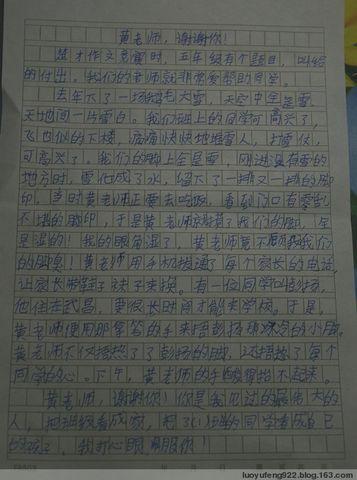 黄老师，谢谢你！
楚才作文竞赛时，五年级有个题目，叫给
的付出。我们的老师就非常爱帮助同学。
去年下了一场鹅毛大雪，天空中全是雪，
天地间一片雪白。我们班上的同学可高兴了，
飞也似的下楼，痛痛快快地堆雪人，打雪仗，
可高兴了。我们的脚上全是雪，刚进没有雪的
地方时，雪化成了水，留下了一排又一排的脚
印。当时黄老师正要去吃饭，看到门口有零乱
不堪的脚印，于是黄老师摸了我们的脚，全
是湿的！我的眼角湿了，黄老师竟不顾我们
的脚臭！黄老师用手机拨通了每个家长的电话，
让家长带鞋子袜子来换。有一位同学叫彭扬，
他住在武昌，要很长时间才能来学校。于是，
黄老师便用那宽大的手来捂彭扬冰冷的小脚。
黄老师不仅捂热了彭扬的脚，还捂热了每个
同学的心。下午，黄老师的手酸得抬不起来。
黄老师，谢谢你！你是我见过的最伟大的
人，把班级看成家，把了(1)班的同学看成自己
的孩子，我打心眼里佩服你！
luoyufeng922.blog.163.com